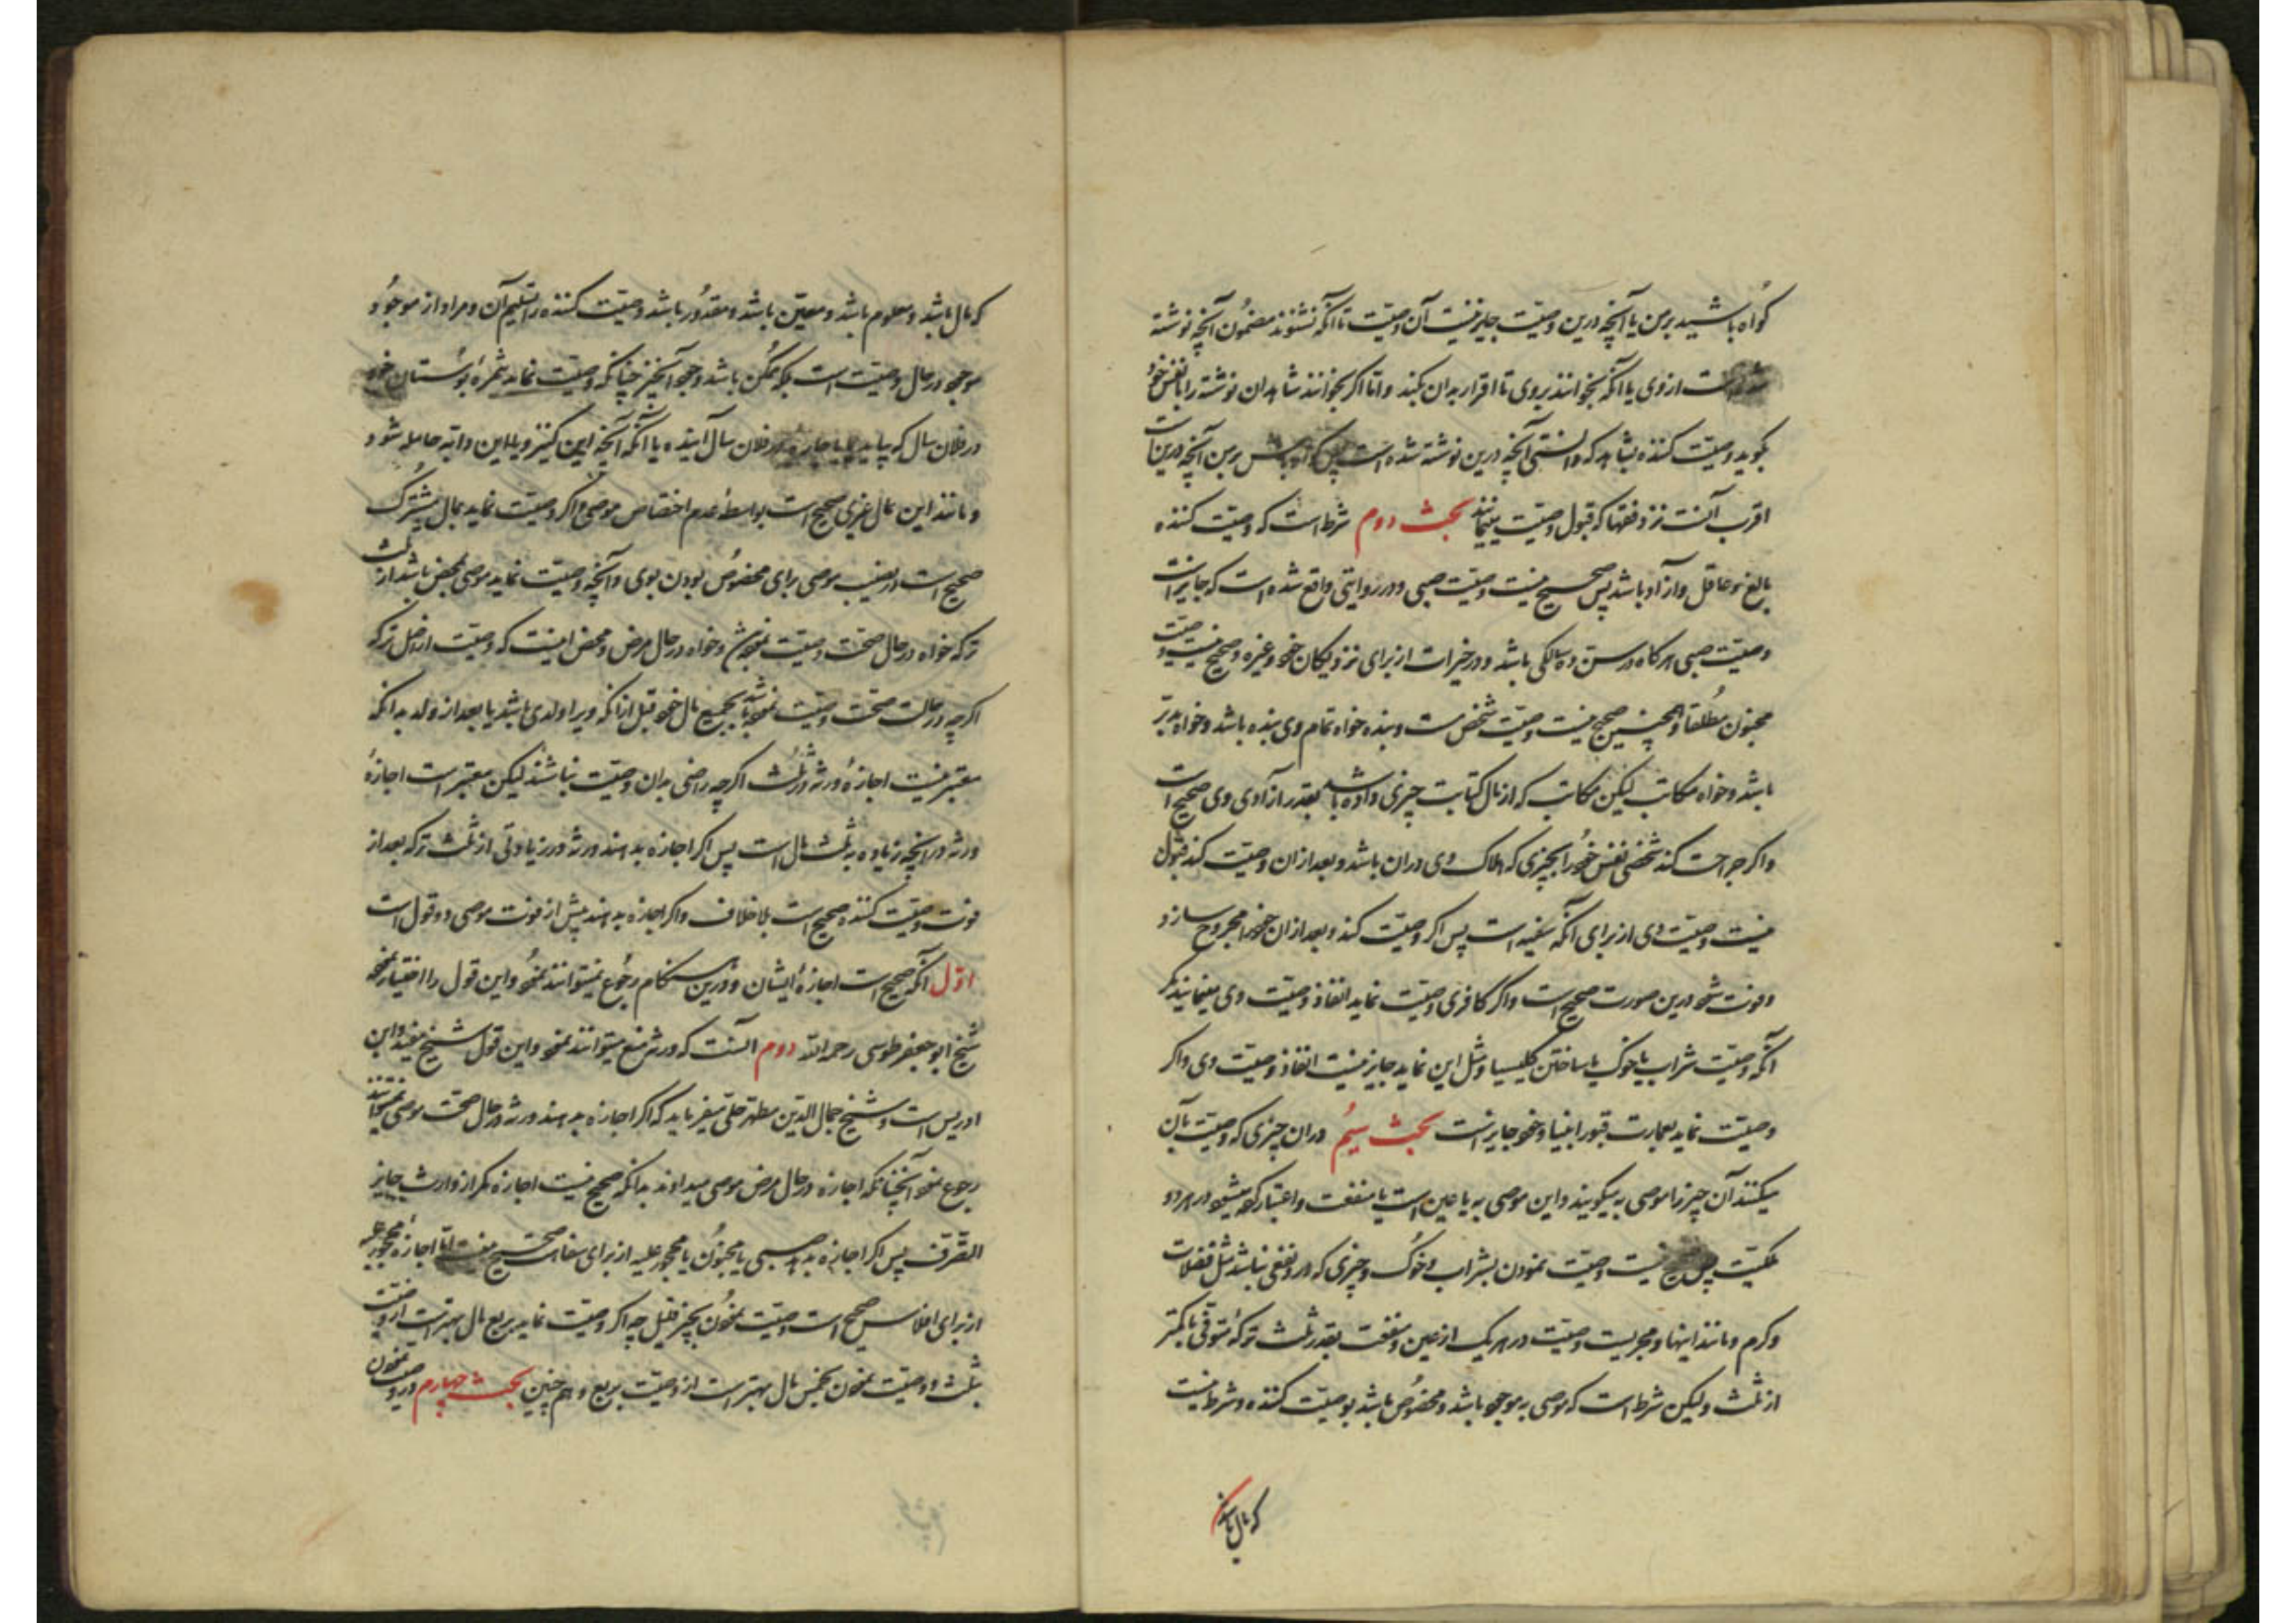 کواه باشید برمن یا آنچه درین وصیّت جایز نیست آن وصیّت تا آنکه نشنوند مضمون آنچه نوشته
شده است از وی یا آنکه بخوانند بروی تا اقرار بدان بکند و امّا اکر بخوانند شاهدان نوشته را با نفس خود
بکوید وصیّت کننده بشاهد که دانستی آنچه درین نوشته شده است پس کواه باش برمن آنچه درین است
اقرب آنست نزد فقها که قبول وصیّت مینمایند بحث دوم شرط است که وصیّت کننده
بالغ و عاقل و آزاد باشد پس صحیح نیست وصیّت صبی و در روایتی واقع شده است که جایز است
وصیّت صبی هرکاه در سن ده سالکی باشد و در خیرات از برای نزدیکان خود و غیره و صحیح نیست وصیّت
مجنون مطلقا و همچنین صحیح نیست وصیّت شخص مست و بنده خواه تمام وی بنده باشد و خواه مدبّر
باشد و خواه مکاتب لیکن مکاتب که از مال کتابت چیزی داده باشد بقدر آزادی وی صحیح است
و اکر جراحت کند شخصی نفس خود را بچیزی که هلاک وی دران باشد و بعد ازان وصیّت کند قبول
نیست وصیّت وی از برای آنکه سفیه است پس اکر وصیّت کند و بعد ازان خود را مجروح سازد
و فوت شود درین صورت صحیح است و اکر کافری وصیّت نماید انفاذ وصیّت وی مینمایند مکر
آنکه وصیّت شراب یا خوک یا ساختن کلیسیا و مثل این نماید جایز نیست انفاذ وصیّت وی و اکر
وصیّت نماید بعمارت قبور انبیا و خود جایز است بحث سیُم دران چیزی که وصیّت بآن
میکنند آن چیز را موصی به میکویند و این موصی به یا عین است یا منفعت و اعتبار کرده میشود در هر دو
ملکیّت پس صحیح نیست وصیّت نمودن بشراب و خوک و چیزی که در و نفعی نباشد مثل فضلات
و کرم و مانند اینها و مجریست وصیّت در هریک از عین و منفعت بقدر ثلث ترکهٔ متوفّی یا کمتر
از ثلث ولیکن شرط است که موصی به موجود باشد و مخصوص باشد بوصیّت کننده و شرط نیست
که مال باشد
که مال باشد و معلوم باشد و معیّن باشد و مقدُور باشد وصیّت کننده را تسلیم آن و مراد از موجُود
موجود در حال وصیّت است بلکه ممکُن باشد وجود آنچیز چنانکه وصیّت نماید ثمرهٔ بوستان خود
در فلان سال که بیاید یا اجاره در فلان سال آینده یا آنکه آنچه این کنیز و یا این دابّه حامله شود
و مانند این بمال غیری صحیح است بواسطهٔ عدم اختصاص موصی و اکر وصیّت نماید بمال مشترک
صحیح است در نصیب موصی برای مخصوص بودن بوی و آنچه وصیّت نماید موصی محض باشد از ثلث
ترکه خواه در حال صحّت وصیّت نموده باشد و خواه در حال مرض و محض اینست که وصیّت از اصل ترکه
اکرچه در حالت صحّت وصیّت نموده باشد بجمیع مال خود قبل ازانکه ویرا ولدی باشد یا بعد از ولد بدانکه
معتبر نیست اجازهٔ ورثه در ثلث اکرچه راضی بدان وصیّت نباشند لیکن معتبر است اجازهٔ
ورثه در آنچه زیاده بر ثلث مال است پس اکر اجازه بدهند ورثه در زیادتی از ثلث ترکه بعد از
فوت وصیّت کننده صحیح است بلا خلاف و اکر اجازه بدهند پیش از فوت موصی دو قول است
اوّل آنکه صحیح است اجازهٔ ایشان و درین هنکام رجُوع نمیتوانند نمود و این قول را اختیار نموده
شیخ ابو جعفر طوسی رحمه الله دوم آنست که ورثه منع میتوانند نمود و این قول شیخ مفید و ابن
ادریس است و شیخ جمال الدّین مطهّر حلّی میفرماید که اکر اجازه بدهند ورثه در حال صحّت موصی میتوانند
رجوع نمود آنچنانکه اجازه در حال مرض موصی میدادند بدانکه صحیح نیست اجازه مکر از وارث جایز
التّصرّف پس اکر اجازه بدهد صبی یا مجنُون یا محجور علیه از برای سفاهت صحیح نیست امّا اجازهٔ محجور علیه
از برای افلاس صحیح است وصیّت نمودن بچیز قلیل چه اکر وصیّت نماید بربع مال بهتر است از وصیّت
بثلث و وصیّت نمودن بخمس مال بهتر است از وصیّت بربع و هم چنین بحث چهارم در وصیّت نمودن